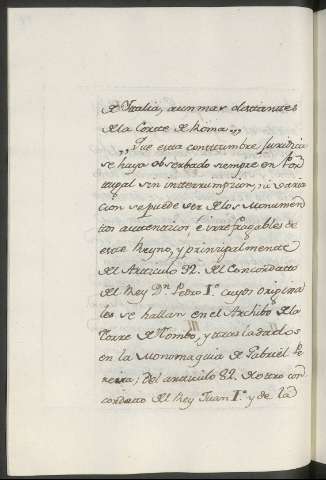 de Ytalia, aun mas distantes
de la Corte de Roma„
„Que esta constumbre Juridica
se haya observado siempre en Por
tugal sin interrumpcion, ni varia
cion se puede ver de los Monumen
tos autenticos, è irrefragables de
este Reyno, y principalmente
del Articulo 32. del Concordato
del Rey Dn. Pedro I.º cuyos origina
les se hallan en el Archibo de la
Torre de Tombo, y trasladados
en la Monomaquia de Gabriel Pe
reira; Del articulo 82. de otro con
cordato del Rey Juan I.º y de la